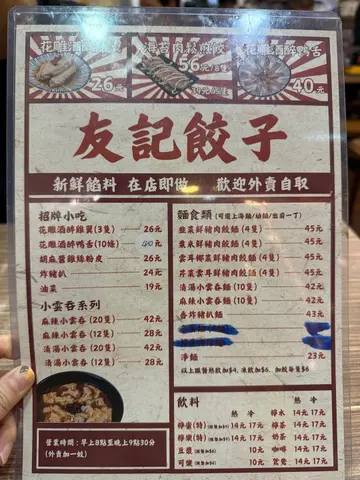 海苔肉鬆煎餃
26元
56元/8隻
40元
友記餃子
新鮮餡料 在店即做 歡迎外賣自取
招牌小吃
花雕酒醉雞翼(3隻) 26元
花雕酒醉鴨舌(10條) 40元
胡麻醬雞絲粉皮 26元
炸豬扒 24元
油菜 19元
小雲吞系列
麻辣小雲吞 (20隻) 42元
麻辣小雲吞 (12隻) 28元
清湯小雲吞 (20隻) 42元
清湯小雲吞 (12隻) 28元
營業時間:早上8點至晚上9點30分
(外賣加一蚊)
麵食類 (可選上海麵/幼麵/出前一丁)
韭菜鮮豬肉餃麵 (4隻) 45元
粟米鮮豬肉餃麵 (4隻) 45元
雲耳椰菜鮮豬肉餃麵 (4隻) 45元
芹菜雲耳鮮豬肉餃麵 (4隻) 45元
清湯小雲吞麵 (10隻) 42元
麻辣小雲吞麵 (10隻) 42元
香炸豬扒麵 43元
淨麵 23元
飲料
熱 冷
熱 冷
檸蜜(特) 14元 17元
檸水 14元 17元
檸樂(特) 14元 17元
檸茶 14元 17元
奶茶 14元 17元
豆漿 10元
咖啡 14元 17元
可樂 10元
鴛鴦 14元 17元